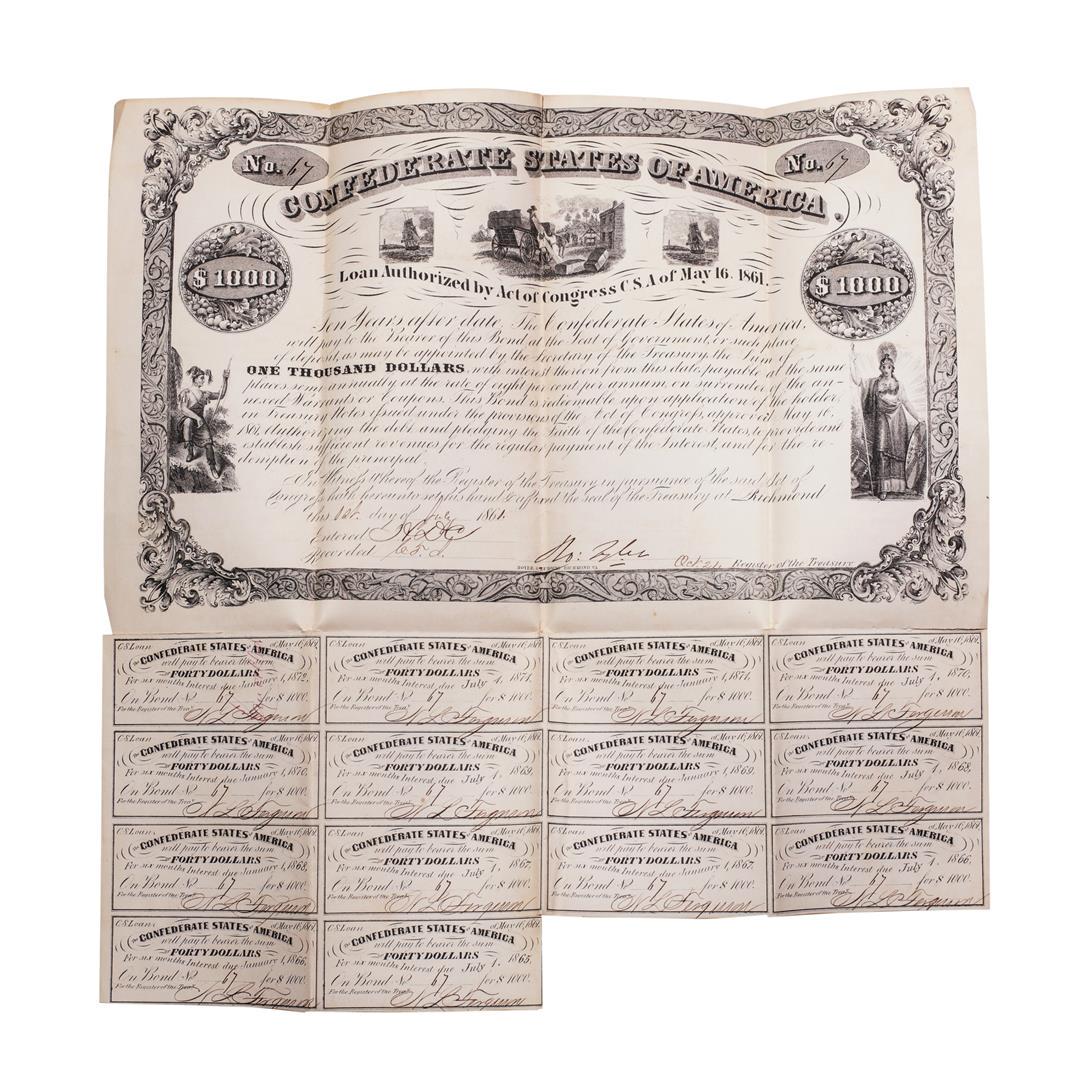 No. 67
No. 67
CONFEDERATE STATES OF AMERICA.
$1000
$1000
Loan Authorized by Act of Congress C S A of May 16. 1861.
Ten Years after date, The Confederate States of America,
will pay to the Bearer of this Bond at the Seat of Government, or such place
of deposit, as may be appointed by the Secretary of the Treasury, the Sum of
ONE THOUSAND DOLLARS, with interest thereon from this date, payable at the same
places semi annually at the rate of eight per cent per annum, on surrender of the an-
nexed Warrants or Coupons. This Bond is redeemable upon application of the holder,
in Treasury Notes issued under the provisions of the Act of Congress, approved May 16,
1861, Authorizing the debt and pledging the Faith of the Confederate States, to provide and
establish sufficient revenues for the regular payment of the Interest, and for the re-
demption of the principal.
In Witness whereof the Register of the Treasury in pursuance of the said Act of
Congress, hath hereunto set his hand & affixed the seal of the Treasury at Richmond
this day of July 1861.
Entered
Recorded
Ro: Tyler
Register of the Treasury
RICHMOND, VA.
C.S. Loan of May 16, 1861.
The CONFEDERATE STATES of AMERICA
will pay to bearer the sum
FORTY DOLLARS
For six months Interest due January 1, 1872.
On Bond No. 67 for $ 1000.
For the Register of the Treas.
N L Ferguson
C.S. Loan of May 16, 1861.
The CONFEDERATE STATES of AMERICA
will pay to bearer the sum
FORTY DOLLARS
For six months Interest due July 1, 1871.
On Bond No. 67 for $ 1000.
For the Register of the Treas.
N L Ferguson
C.S. Loan of May 16, 1861.
The CONFEDERATE STATES of AMERICA
will pay to bearer the sum
FORTY DOLLARS
For six months Interest due January 1, 1871.
On Bond No. 67 for $ 1000.
For the Register of the Treas.
N L Ferguson
C.S. Loan of May 16, 1861.
The CONFEDERATE STATES of AMERICA
will pay to bearer the sum
FORTY DOLLARS
For six months Interest due July 1, 1870.
On Bond No. 67 for $ 1000.
For the Register of the Treas.
N L Ferguson
C.S. Loan of May 16, 1861.
The CONFEDERATE STATES of AMERICA
will pay to bearer the sum
FORTY DOLLARS
For six months Interest due January 1, 1870.
On Bond No. 67 for $ 1000.
For the Register of the Treas.
N L Ferguson
C.S. Loan of May 16, 1861.
The CONFEDERATE STATES of AMERICA
will pay to bearer the sum
FORTY DOLLARS
For six months Interest due July 1, 1869.
On Bond No. 67 for $ 1000.
For the Register of the Treas.
N L Ferguson
C.S. Loan of May 16, 1861.
The CONFEDERATE STATES of AMERICA
will pay to bearer the sum
FORTY DOLLARS
For six months Interest due January 1, 1869.
On Bond No. 67 for $ 1000.
For the Register of the Treas.
N L Ferguson
C.S. Loan of May 16, 1861.
The CONFEDERATE STATES of AMERICA
will pay to bearer the sum
FORTY DOLLARS
For six months Interest due July 1, 1868.
On Bond No. 67 for $ 1000.
For the Register of the Treas.
N L Ferguson
C.S. Loan of May 16, 1861.
The CONFEDERATE STATES of AMERICA
will pay to bearer the sum
FORTY DOLLARS
For six months Interest due January 1, 1868.
On Bond No. 67 for $ 1000.
For the Register of the Treas.
N L Ferguson
C.S. Loan of May 16, 1861.
The CONFEDERATE STATES of AMERICA
will pay to bearer the sum
FORTY DOLLARS
For six months Interest due July 1, 1867.
On Bond No. 67 for $ 1000.
For the Register of the Treas.
N L Ferguson
C.S. Loan of May 16, 1861.
The CONFEDERATE STATES of AMERICA
will pay to bearer the sum
FORTY DOLLARS
For six months Interest due January 1, 1867.
On Bond No. 67 for $ 1000.
For the Register of the Treas.
N L Ferguson
C.S. Loan of May 16, 1861.
The CONFEDERATE STATES of AMERICA
will pay to bearer the sum
FORTY DOLLARS
For six months Interest due July 1, 1866.
On Bond No. 67 for $ 1000.
For the Register of the Treas.
N L Ferguson
C.S. Loan of May 16, 1861.
The CONFEDERATE STATES of AMERICA
will pay to bearer the sum
FORTY DOLLARS
For six months Interest due January 1, 1866.
On Bond No. 67 for $ 1000.
For the Register of the Treas.
N L Ferguson
C.S. Loan of May 16, 1861.
The CONFEDERATE STATES of AMERICA
will pay to bearer the sum
FORTY DOLLARS
For six months Interest due July 1, 1865.
On Bond No. 67 for $ 1000.
For the Register of the Treas.
N L Ferguson